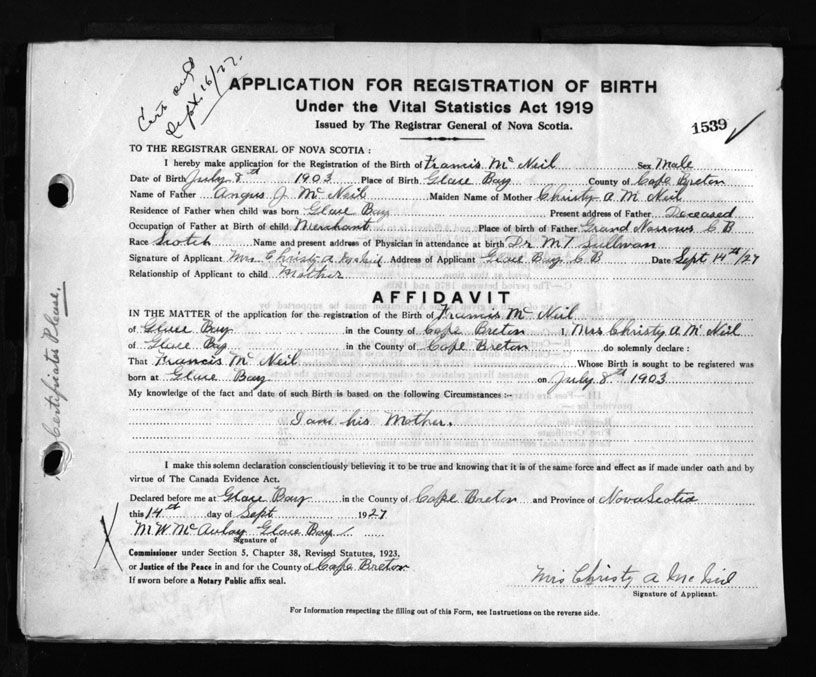 Cert. Sept. 16/27.
APPLICATION FOR REGISTRATION OF BIRTH
Under the Vital Statistics Act 1919
Issued by The Registrar General of Nova Scotia.
1539
TO THE REGISTRAR GENERAL OF NOVA SCOTIA:
I hereby make application for the Registration of the Birth of Francis Mc Neil Sex Male
Date of Birth July 8th 1903 Place of Birth Glace Bay County of Cape Breton
Name of Father Angus J Mc Neil Maiden Name of Mother Christy A Mc Neil
Residence of Father when child was born Glace Bay Present address of Father Deceased
Occupation of Father at Birth of child Merchant Place of Birth of Father Grand Narrows C B
Race Scotch Name and present address of Physician in attendance at birth Dr. M T Sullivan
Signature of Applicant Mrs Christy A McNeil Address of Applicant Glace Bay C B Date Sept 14th/27
Relationship of Applicant to child Mother
AFFIDAVIT
IN THE MATTER of the application for the registration of the Birth of Francis Mc Neil
of Glace Bay in the County of Cape Breton I, Mrs Christy A Mc Neil
of Glace Bay in the County of Cape Breton do solemnly declare:
That Francis Mc Neil Whose Birth is sought to be registered was
born at Glace Bay on July 8th 1903
My knowledge of the fact and date of such Birth is based on the following Circumstances :-
I am his Mother.
I make this solemn declaration conscientiously believing it to be true and knowing that it is of the same force and effect as if made under oath and by
virtue of The Canada Evidence Act.
Declared before me at Glace Bay in the County of Cape Breton and Province of Nova Scotia
this 14th day of Sept 1927
M W McAulay Glace Bay
Signature of
Commissioner under Section 5, Chapter 38, Revised Statutes, 1923.
or Justice of the Peace in and for the County of Cape Breton
If sworn before a Notary Public affix seal.
Mrs Christy A Mc Neil
Signature of Applicant.
For Information respecting the filling out of this Form, see Instructions on the reverse side.
Certificates Please.